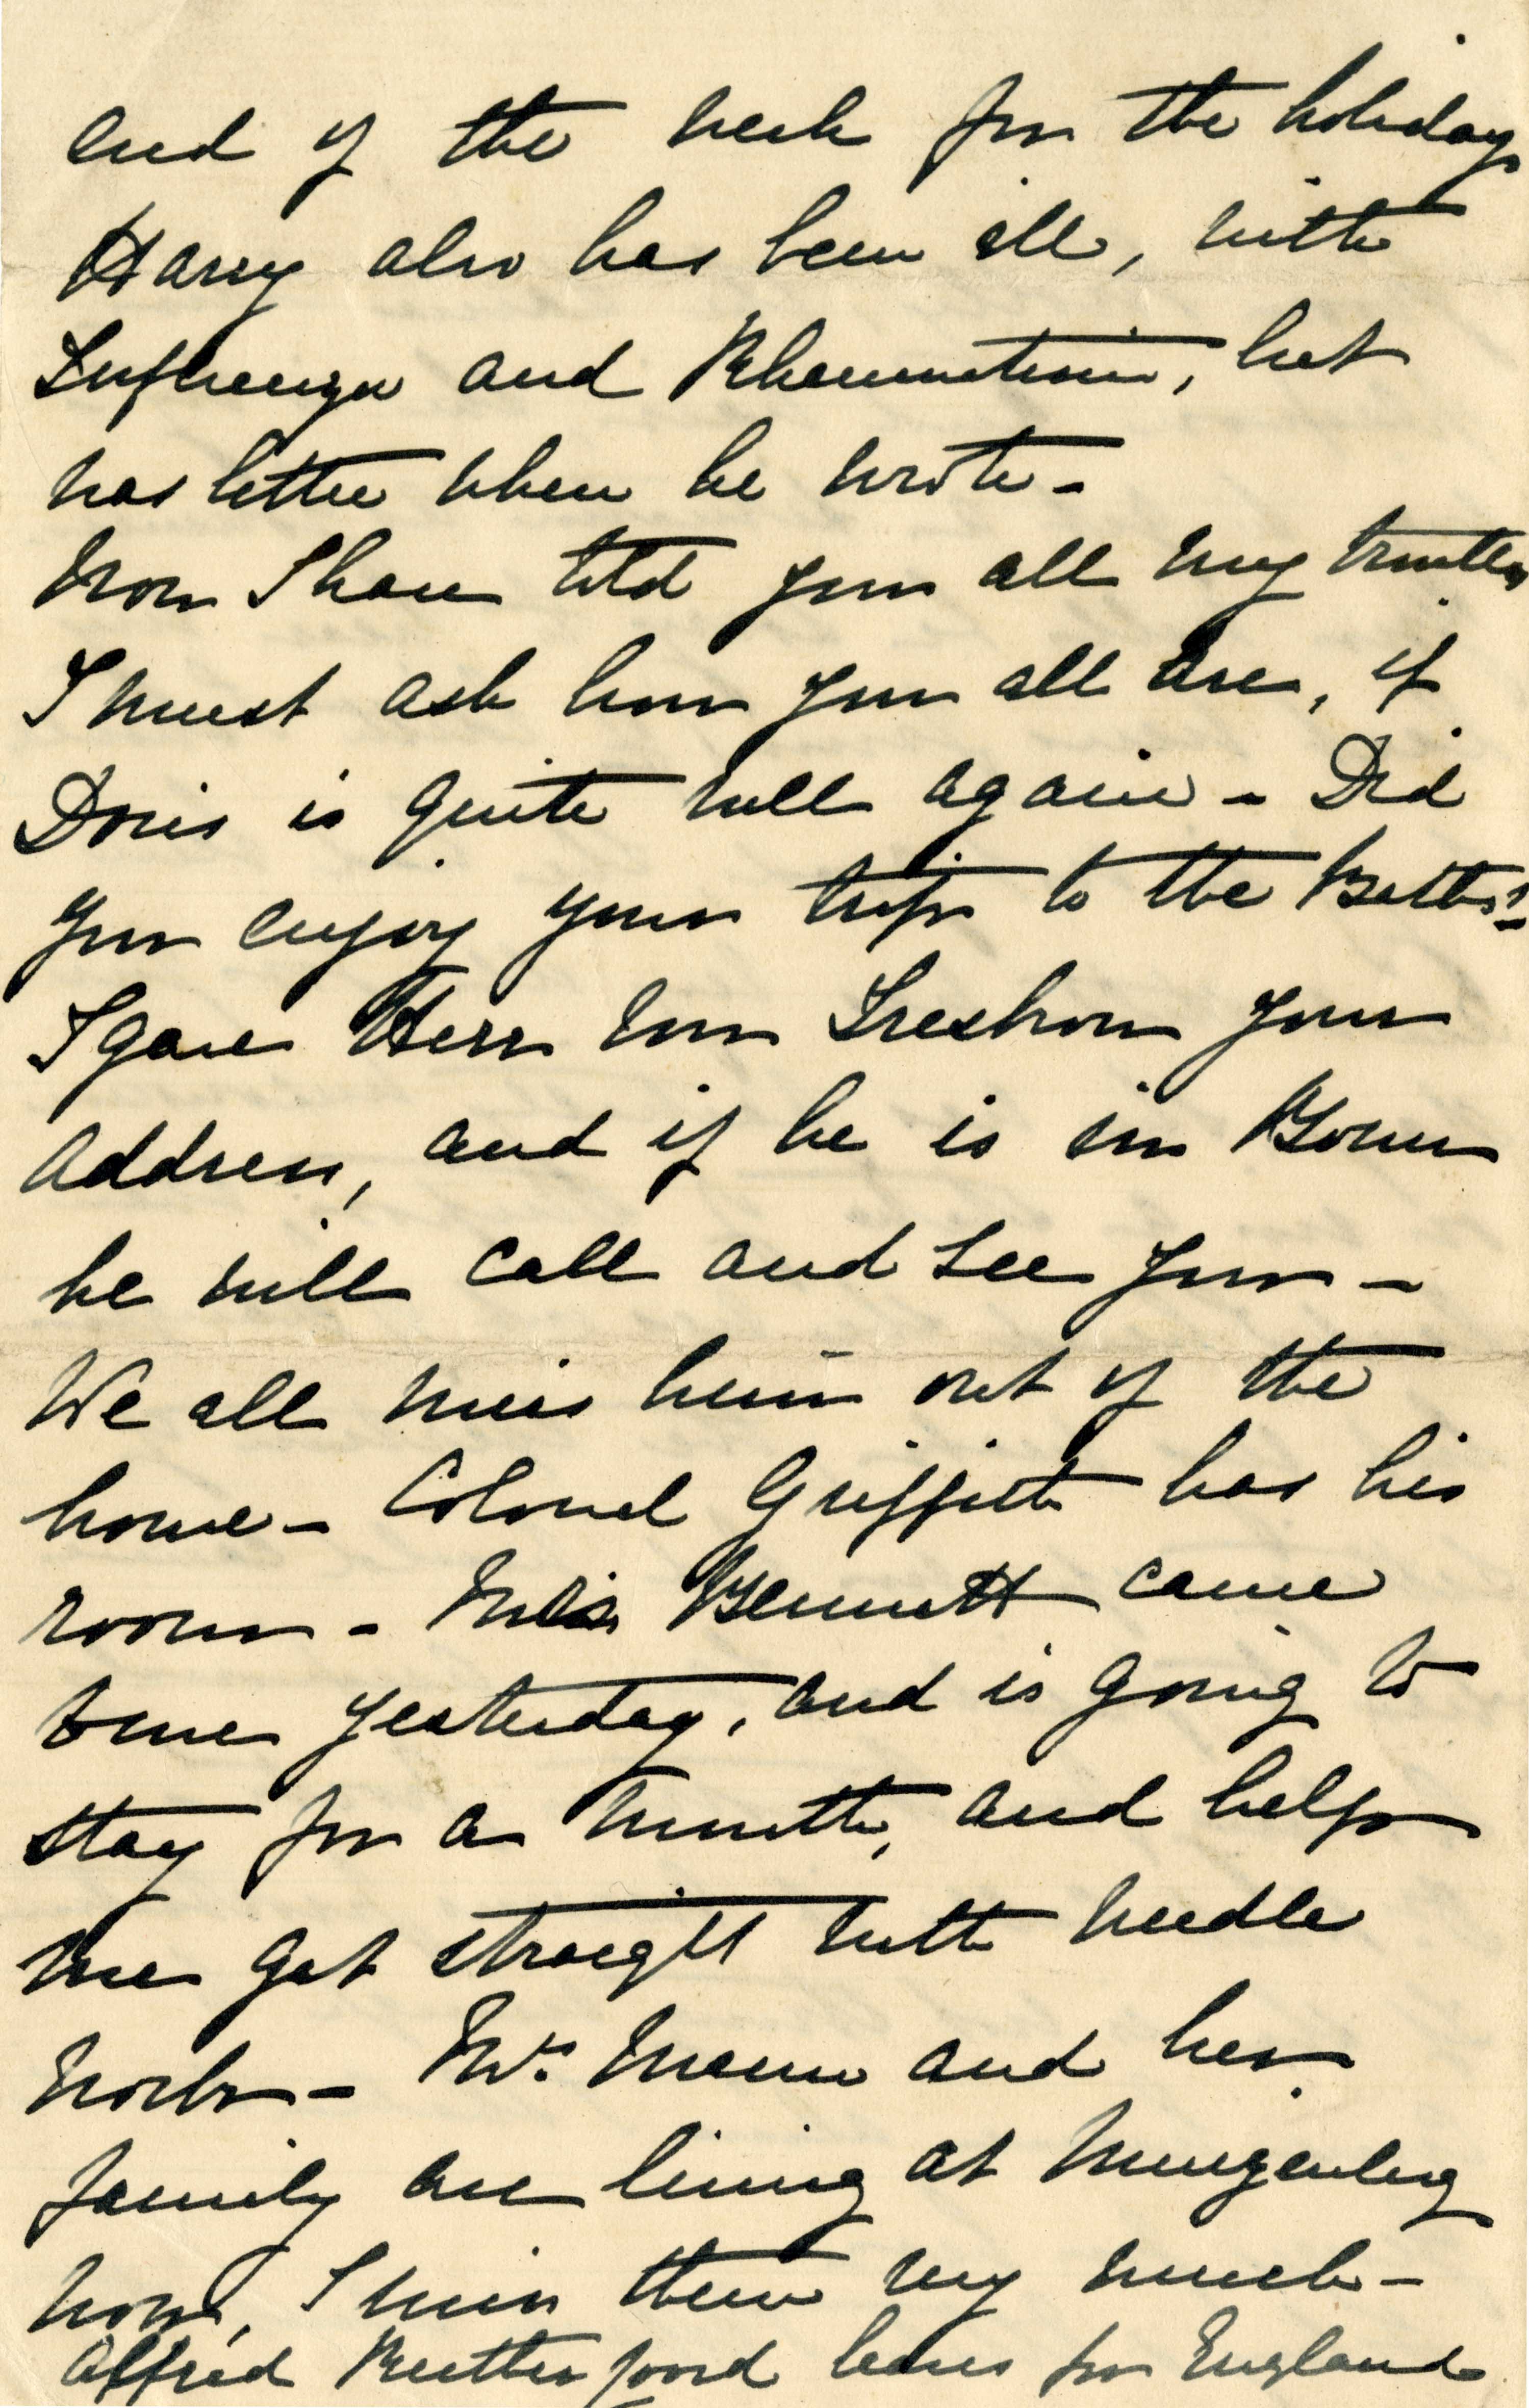 end of the week for the holidays
Harry also has been ill, with
Influenza and Rheumatism, but
was better when he wrote -
Now I have told you all my troubles
I must ask how you all are, if
Doris is quite well again - Did
you enjoy your trip to the Betts?
I gave Herr von your
address, and if he is in Bonn
he will call and see you -
We all miss him out of the
house - Colonel Griffith has his
room - Miss Bennett came
to me yesterday, and is going to
stay for a month, and help
me get straight with needle
work - Mrs. Mann and her
family are living at
now, I miss them very much -
Alfred Rutherford leaves for England